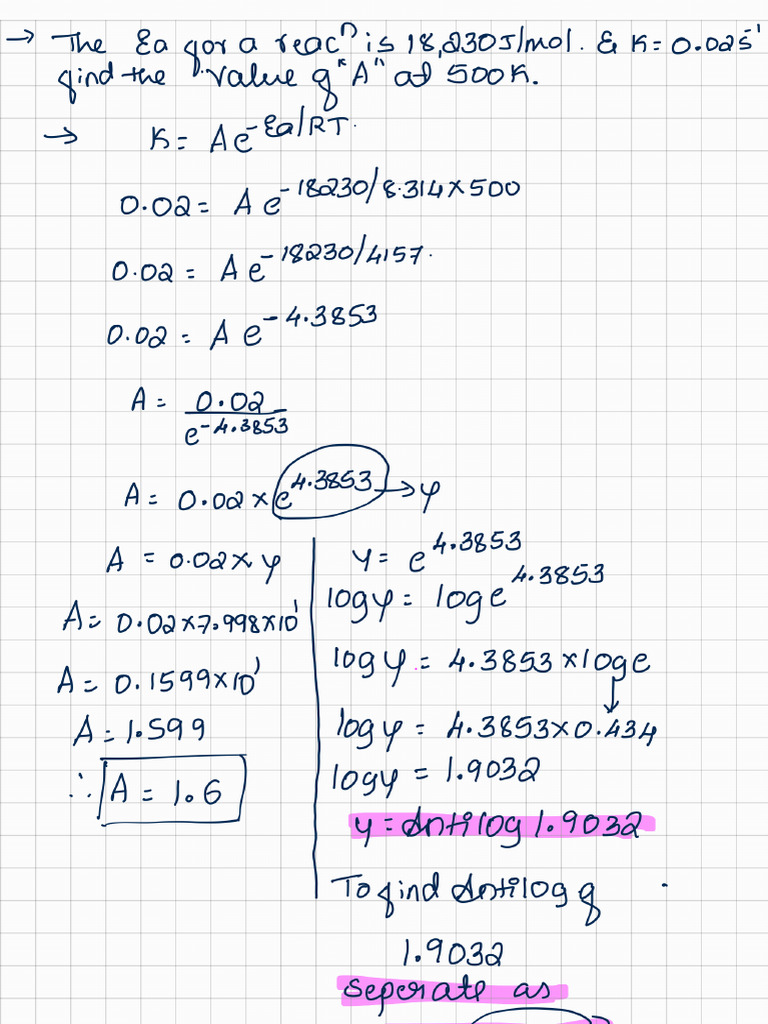 → The Ea for a reacⁿ is 18,230 J/mol. & K = 0.02 s⁻¹
find the value of "A" at 500K.
→ K = Ae^-Ea/RT.
0.02 = A e^-18230/8.314×500
0.02 = A e^-18230/4157.
0.02 = A e^-4.3853
A = 0.02/e^-4.3853
A = 0.02 × e^4.3853 → y
A = 0.02 × y
A = 0.02×7.998×10¹
A = 0.1599×10¹
A = 1.599
∴ A = 1.6
y = e^4.3853
log y = log e^4.3853
log y = 4.3853 × log e
log y = 4.3853 × 0.434
log y = 1.9032
y = Antilog 1.9032
To find Antilog of
1.9032
seperate as